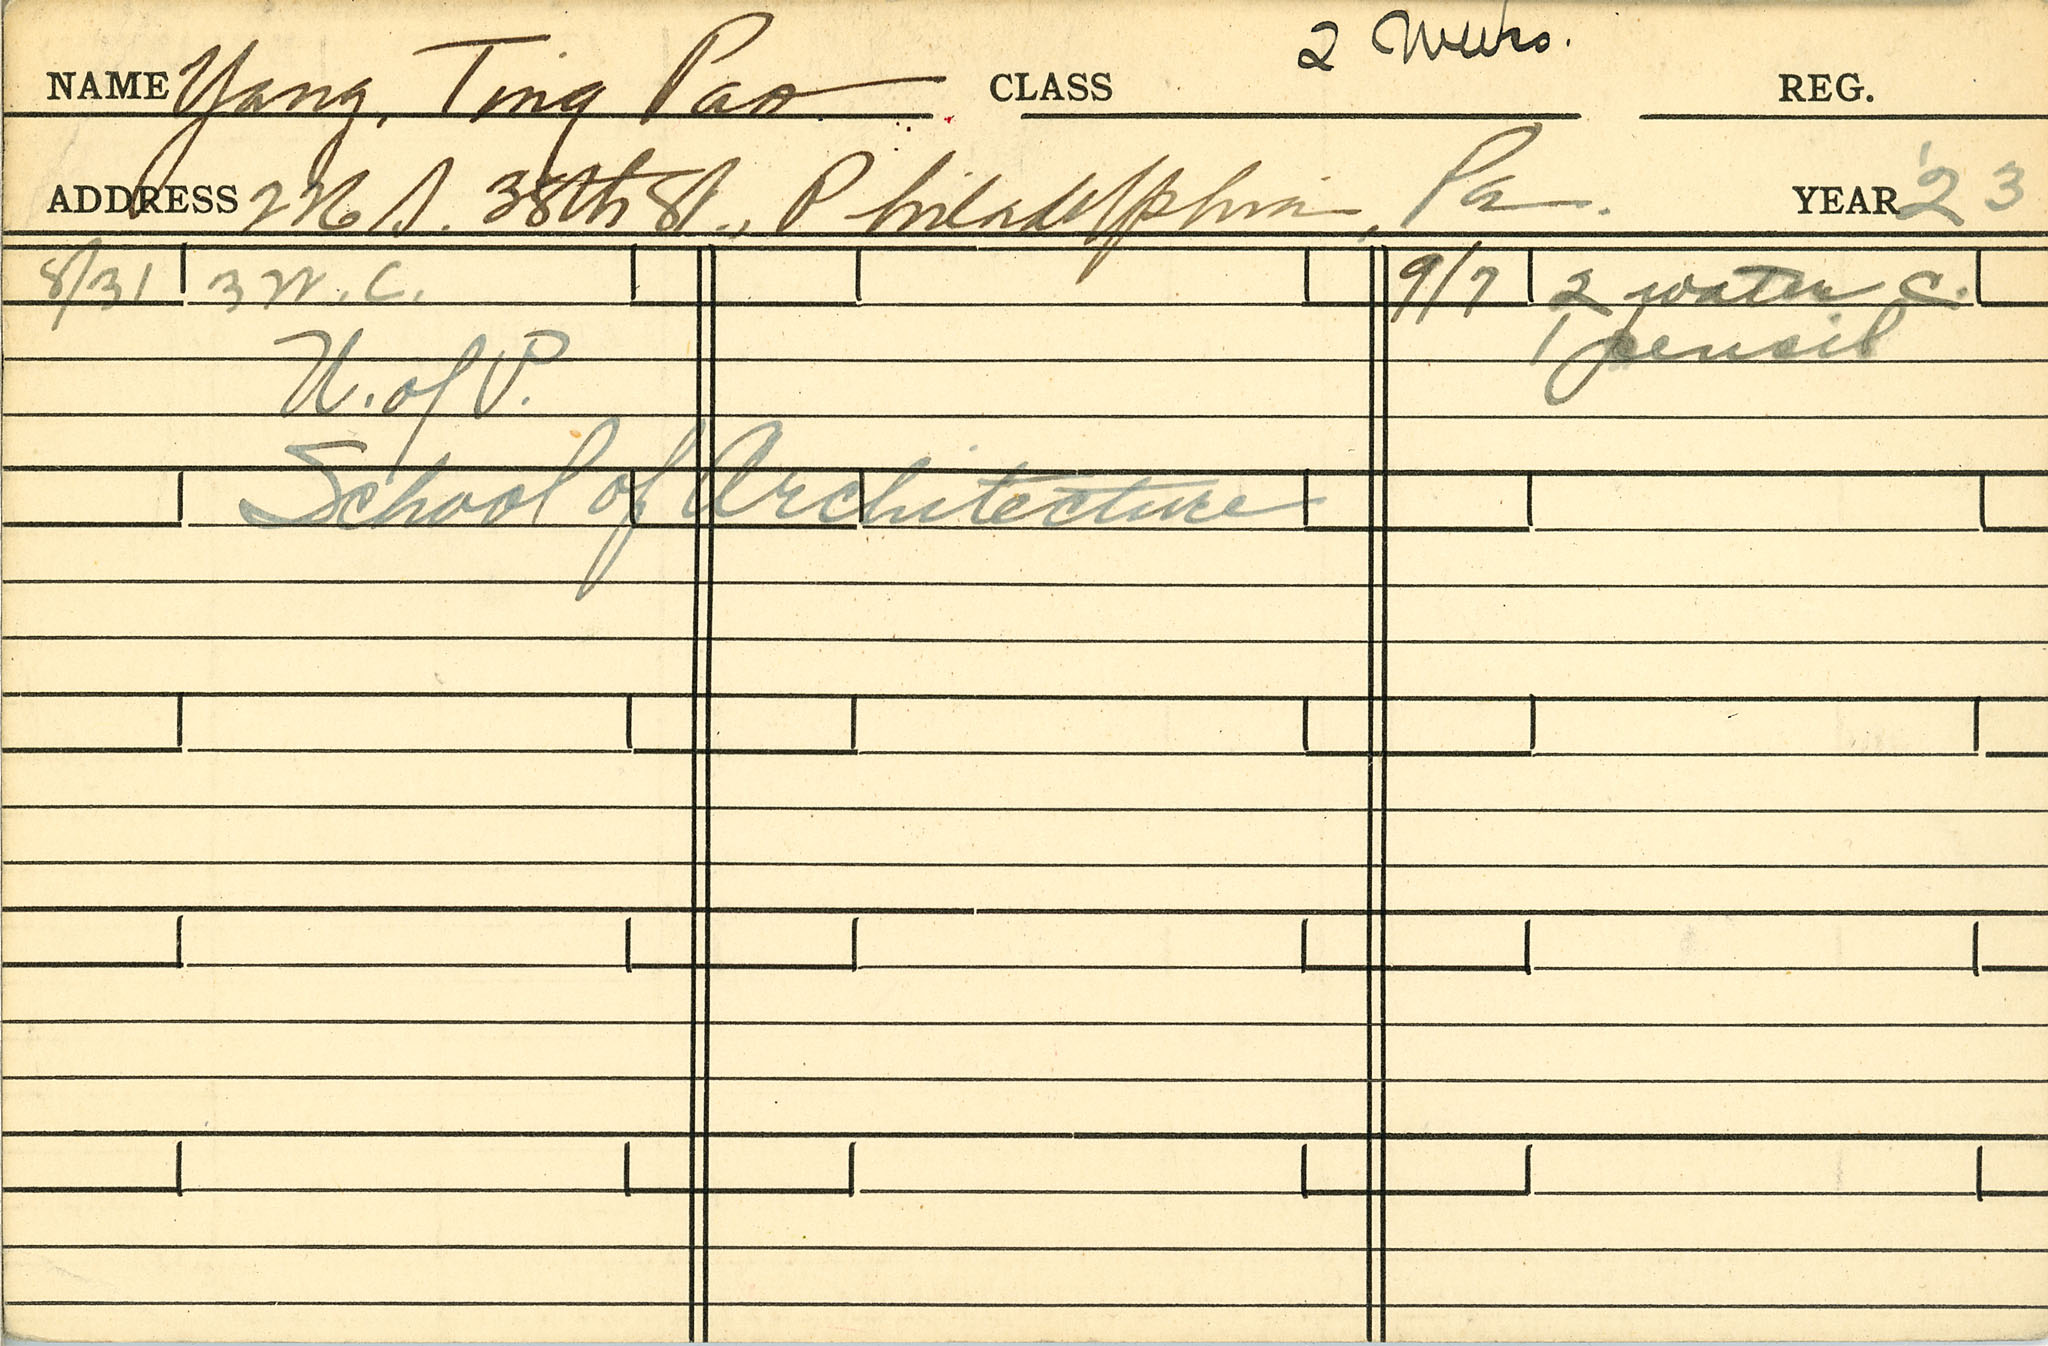 2 Weeks.
NAME Yang, Ting Pao CLASS REG.
ADDRESS 226 S. 38th St., Philadelphia, Pa. YEAR '23
8/31 3 W. C. 9/7 2 water c.
1 pencil
U. of P.
School of Architecture